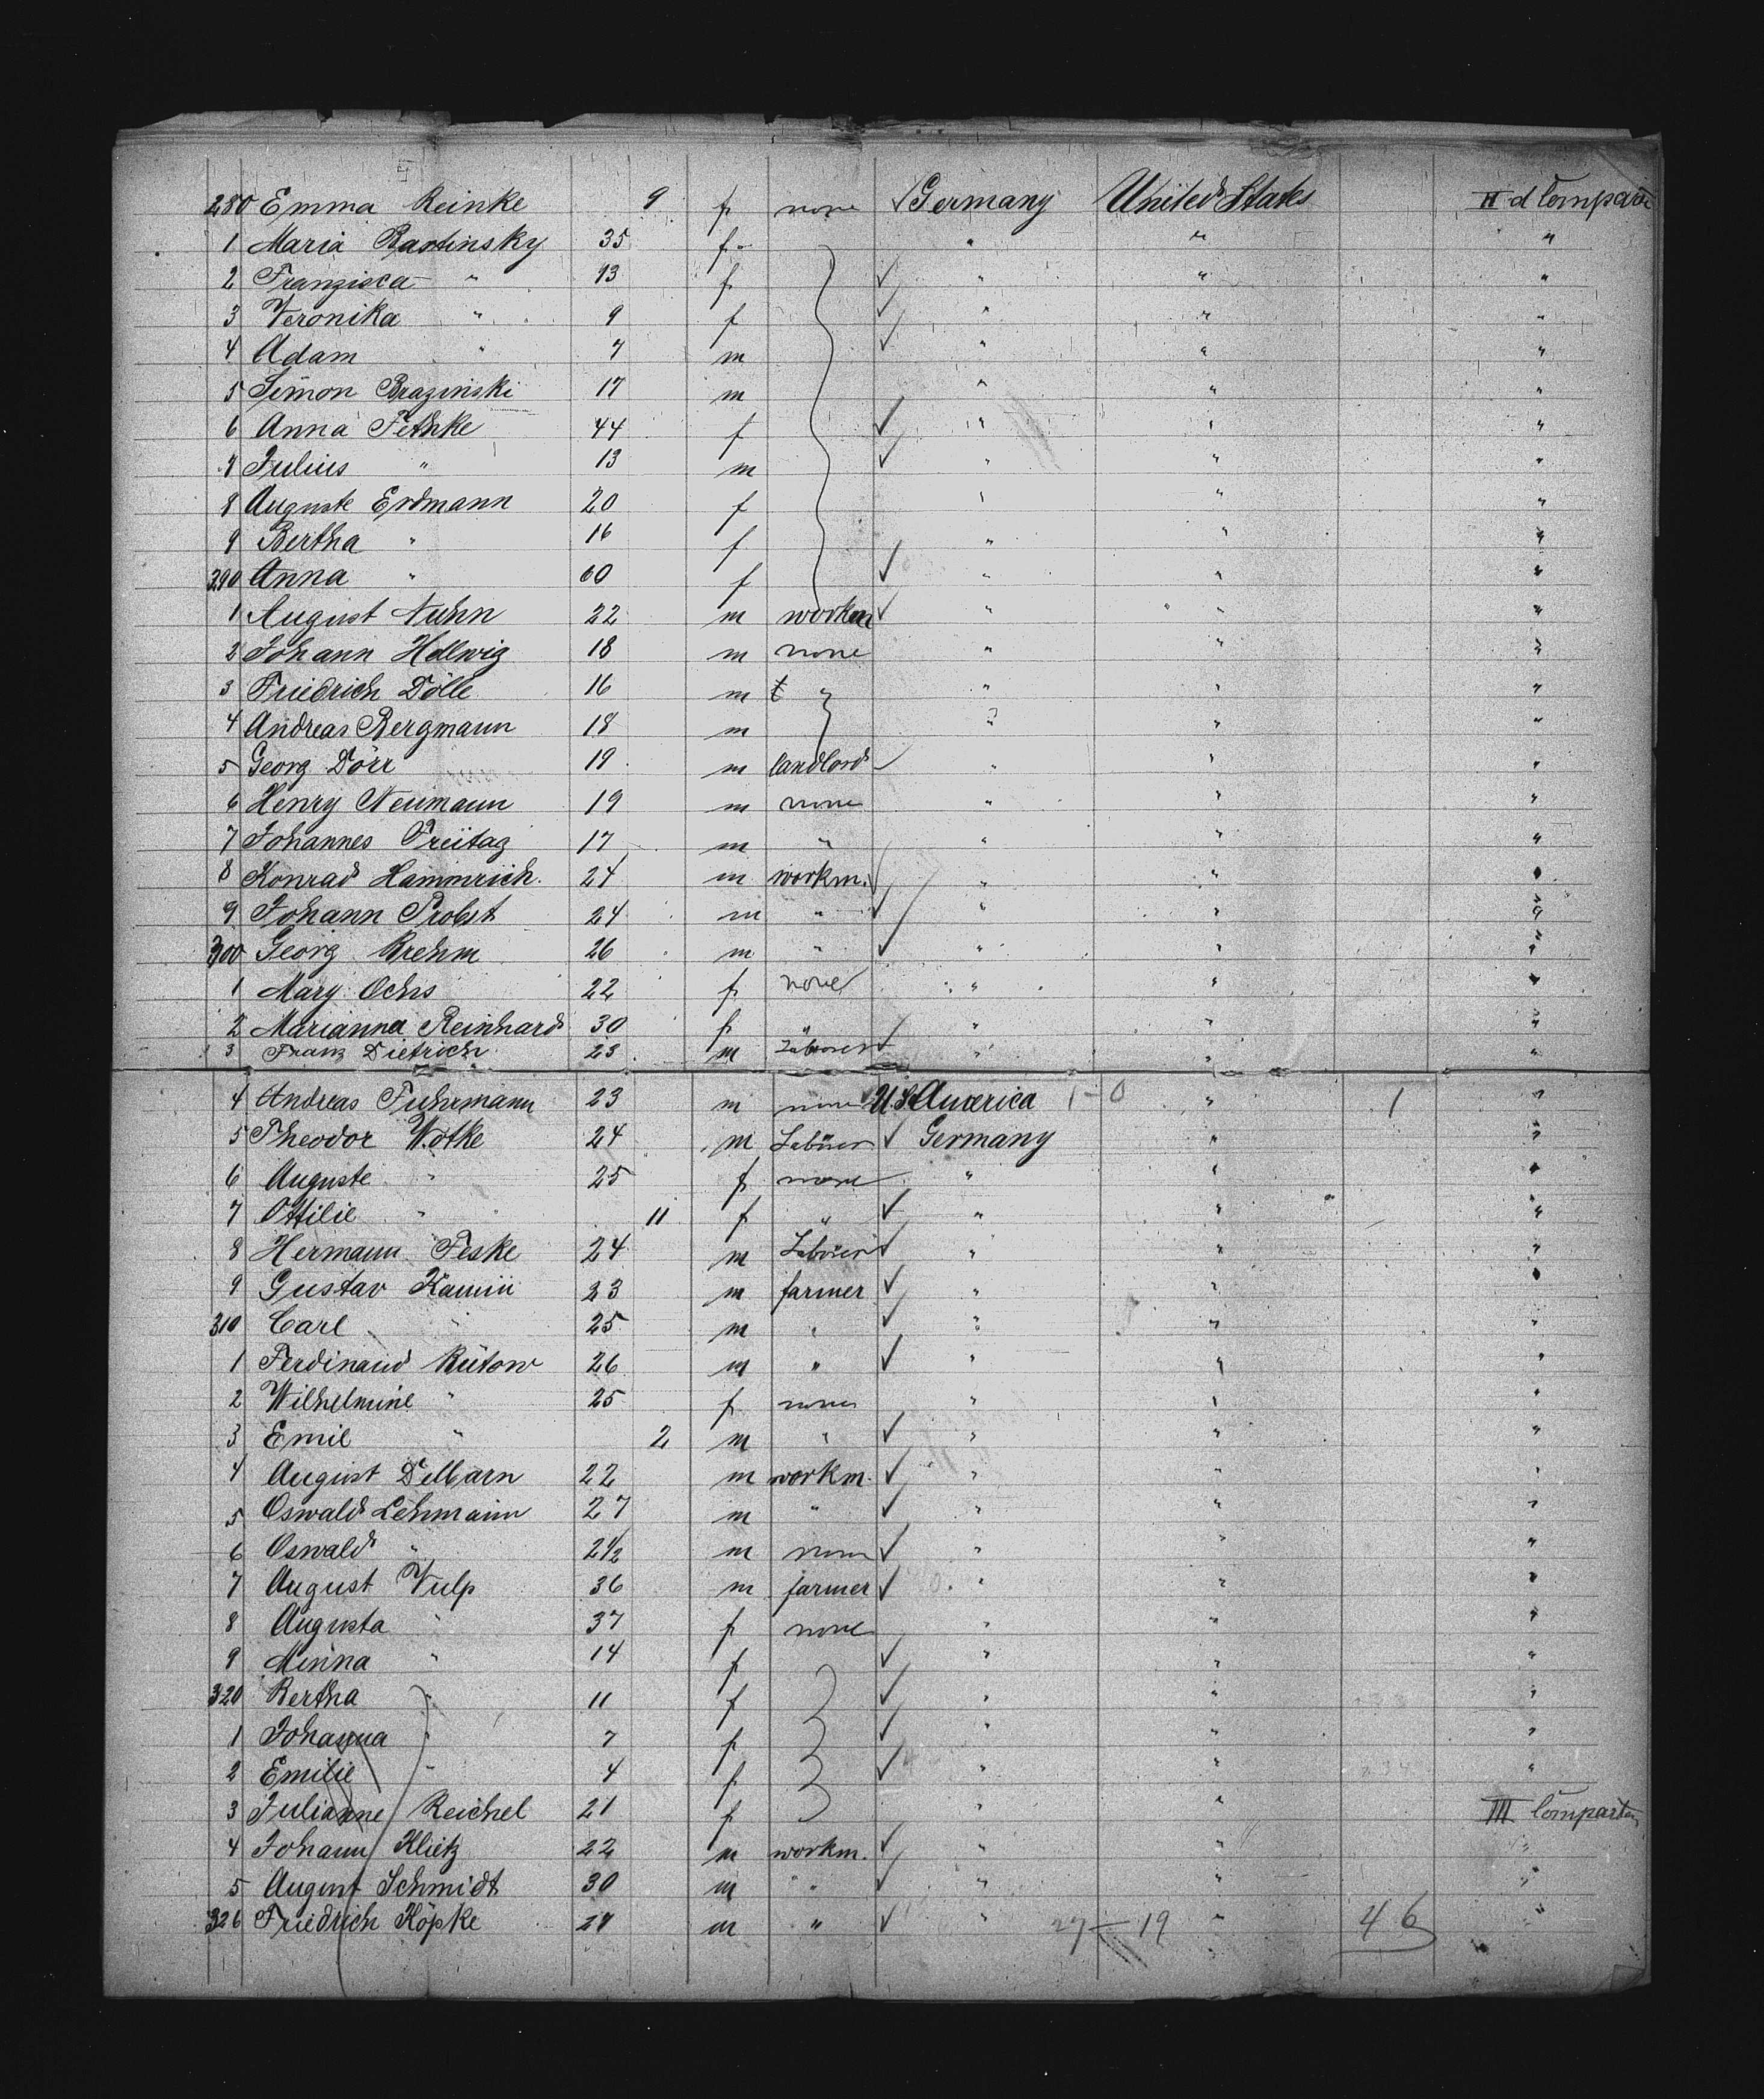 280 Emma Reinke 9 f none √ Germany United States II d Compart
1 Maria Rastinsky 35 f " " "
2 Franzisca " 13 f √ " " "
3 Veronika " 9 f √ " " "
4 Adam " 7 m √ " " "
5 Simon Brazinski 17 m " " "
6 Anna Fethke 44 f √ " " "
7 Julius " 13 m √ " " "
8 Auguste Erdmann 20 f " " "
9 Bertha " 16 f " " "
290 Anna " 60 f √ " " "
1 August Nuhn 22 m workm √ " " "
2 Johann Hellwig 18 m none " " "
3 Friedrich Dölle 16 m " " " "
4 Andreas Bergmann 18 m " " "
5 Georg Dörr 19 m landlord √ " " "
6 Henry Neumann 19 m none " " "
7 Johannes Freitag 17 m " " " "
8 Konrad Hammrich 24 m workm. √ " " "
9 Johann Probst 24 m " √ " " "
300 Georg Brehm 26 m " √ " " "
1 Mary Ochs 22 f none " " "
2 Marianna Reinhard 30 f " √ " " "
3 Franz Dietrich 23 m Laborer √ " " "
4 Andreas Fuhrmann 23 m none U.S. America 1-0 " 1 "
5 Theodor Wotke 24 m Laborer √ Germany " "
6 Auguste " 25 f none " " "
7 Ottilie " 11 f " √ " " "
8 Hermann Peske 24 m Laborer √ " " "
9 Gustav Kamin 23 m farmer √ " " "
310 Carl " 25 m " √ " " "
1 Ferdinand Rütow 26 m " √ " " "
2 Wilhelmine " 25 f none " " "
3 Emil " 2 m " √ " " "
4 August Dellarn 22 m workm. √ " " "
5 Oswald Lehmann 27 m " √ " " "
6 Oswald " 2½ m none √ " " "
7 August Vulp 36 m farmer √ " " "
8 Augusta " 37 f none " " "
9 Minna " 14 f √ " " "
320 Bertha " 11 f √ " " "
1 Johanna " 7 f √ " " "
2 Emilie " 4 f √ " " "
3 Julianne Reichel 21 f " " III Compart
4 Johann Klietz 22 m workm. √ " " "
5 August Schmidt 30 m " √ " " "
326 Friedrich Köpke 27 m " √ " 27 – 19 " 46 "